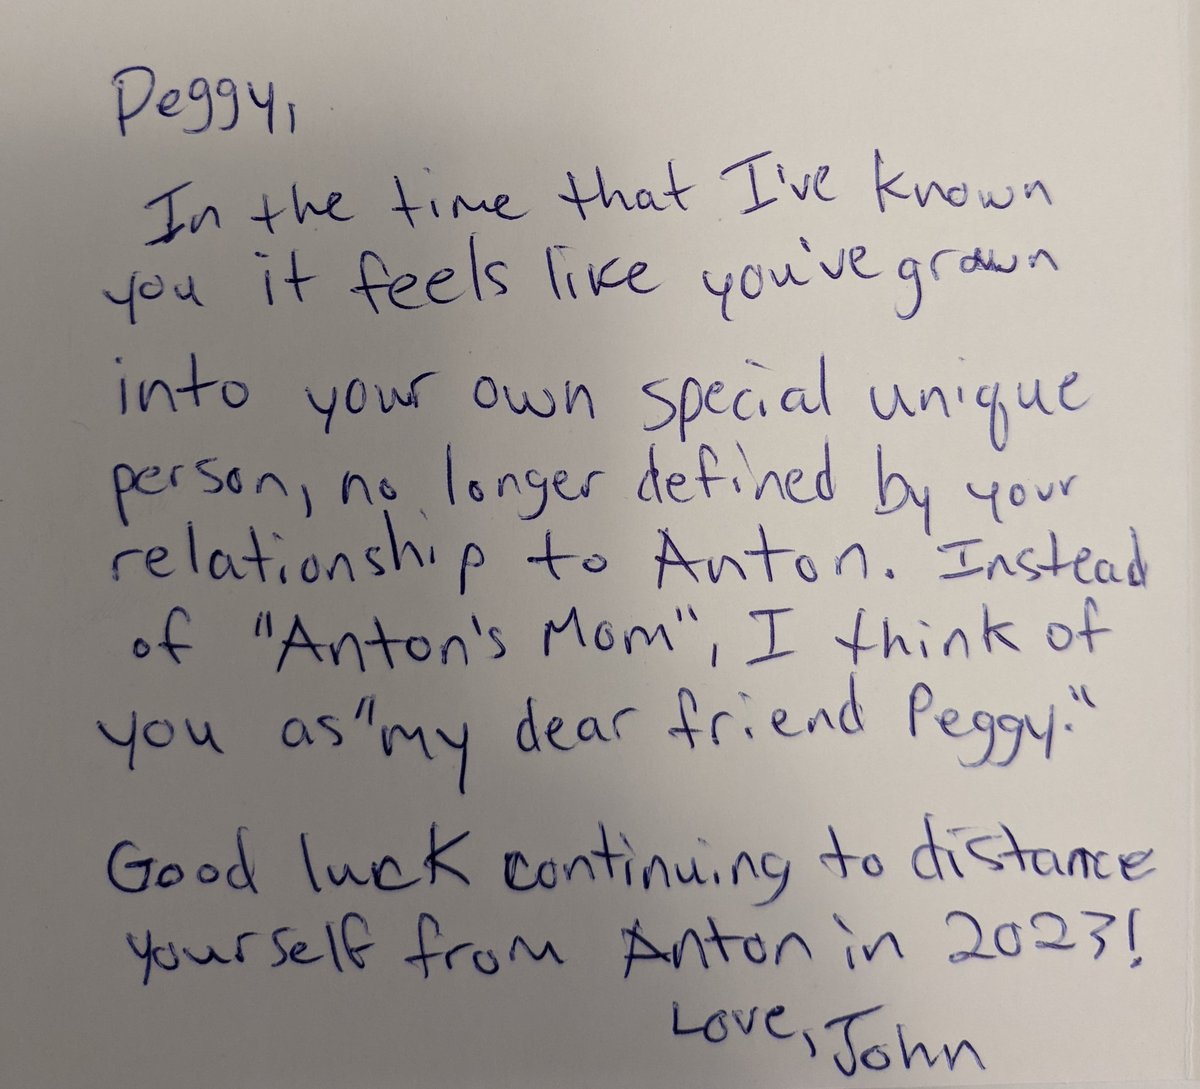 Peggy,
In the time that I've known
you it feels like you've grown
into your own special unique
person, no longer defined by your
relationship to Anton. Instead
of "Anton's Mom", I think of
you as "my dear friend Peggy."
Good luck continuing to distance
yourself from Anton in 2023!
Love, John